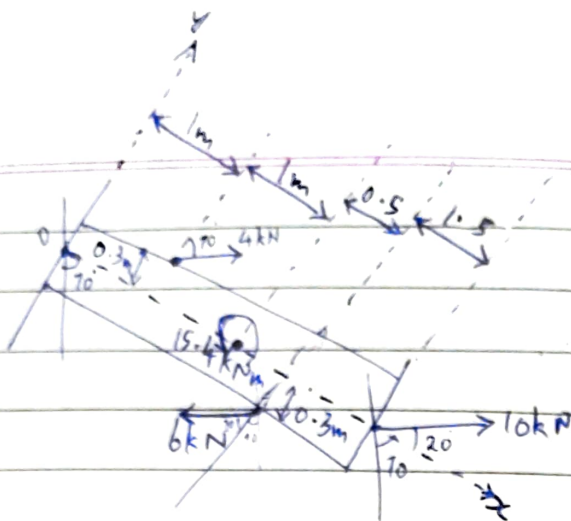 Y
1m
1m
0.5
1.5
0
0.3
70
70
4kN
15.4kNm
6kN
0.3m
10kN
20
70
x